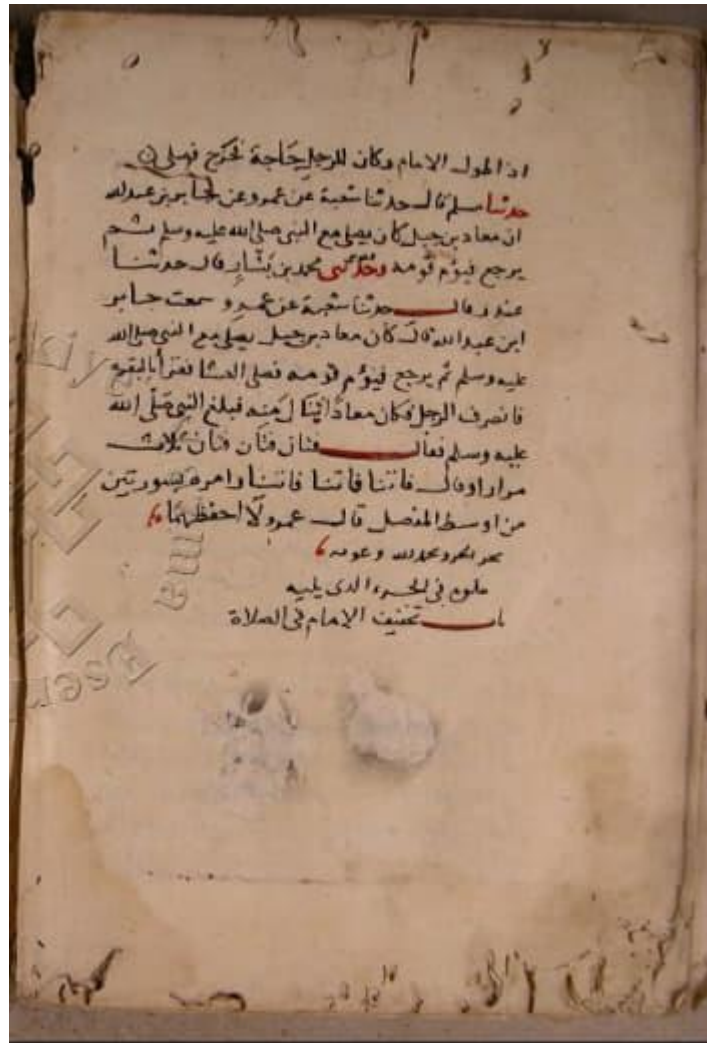 اذا طول الامام وكان للرجل حاجة فخرج فصلى
حدثنا مسلم قال حدثنا شعبة عن عمرو عن جابر بن عبد الله
ان معاذ بن جبل كان يصلي مع النبي صلى الله عليه وسلم ثم
يرجع فيؤم قومه وحدثني محمد بن بشار قال حدثنا
غندر قال حدثنا شعبة عن عمرو سمعت جابر
ابن عبد الله قال كان معاذ بن جبل يصلي مع النبي صلى الله
عليه وسلم ثم يرجع فيؤم قومه فصلى العشا فقرأ بالبقرة
فانصرف الرجل فكان معاذا ينال منه فبلغ النبي صلى الله
عليه وسلم فقال فتان فتان فتان ثلاث
مرار او قال فاتنا فاتنا فاتنا وامره بسورتين
من اوسط المفصل قال عمرو لا احفظهما
الجزء بحمد الله وعونه
يتلوه في الجزء الذي يليه
باب تخفيف الامام في الصلاة